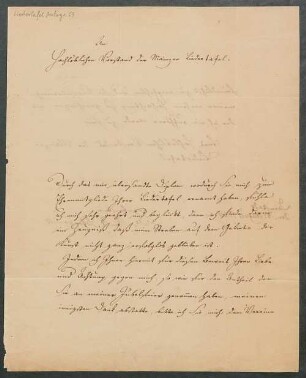 An
Hochlöblichen Vorstand der Mainzer Liedertafel.
Durch das mir übersandte Diplom wodurch Sie mich zum
Ehrenmitgliede Ihrer Liedertafel ernannt haben, fühle
ich mich sehr geehrt und beglückt, denn ich finde darin
ein Zeugniß daß mein Streben auf dem Gebiete der
Kunst nicht ganz erfolglos geblieben ist.
Indem ich Ihnen hiermit für diesen Beweis Ihrer Liebe
und Achtung gegen mich, so wie für den Antheil den
Sie an meiner Jubelfeier genommen haben, meinen
innigsten Dank abstatte, bitte ich Sie mich dem Vereine